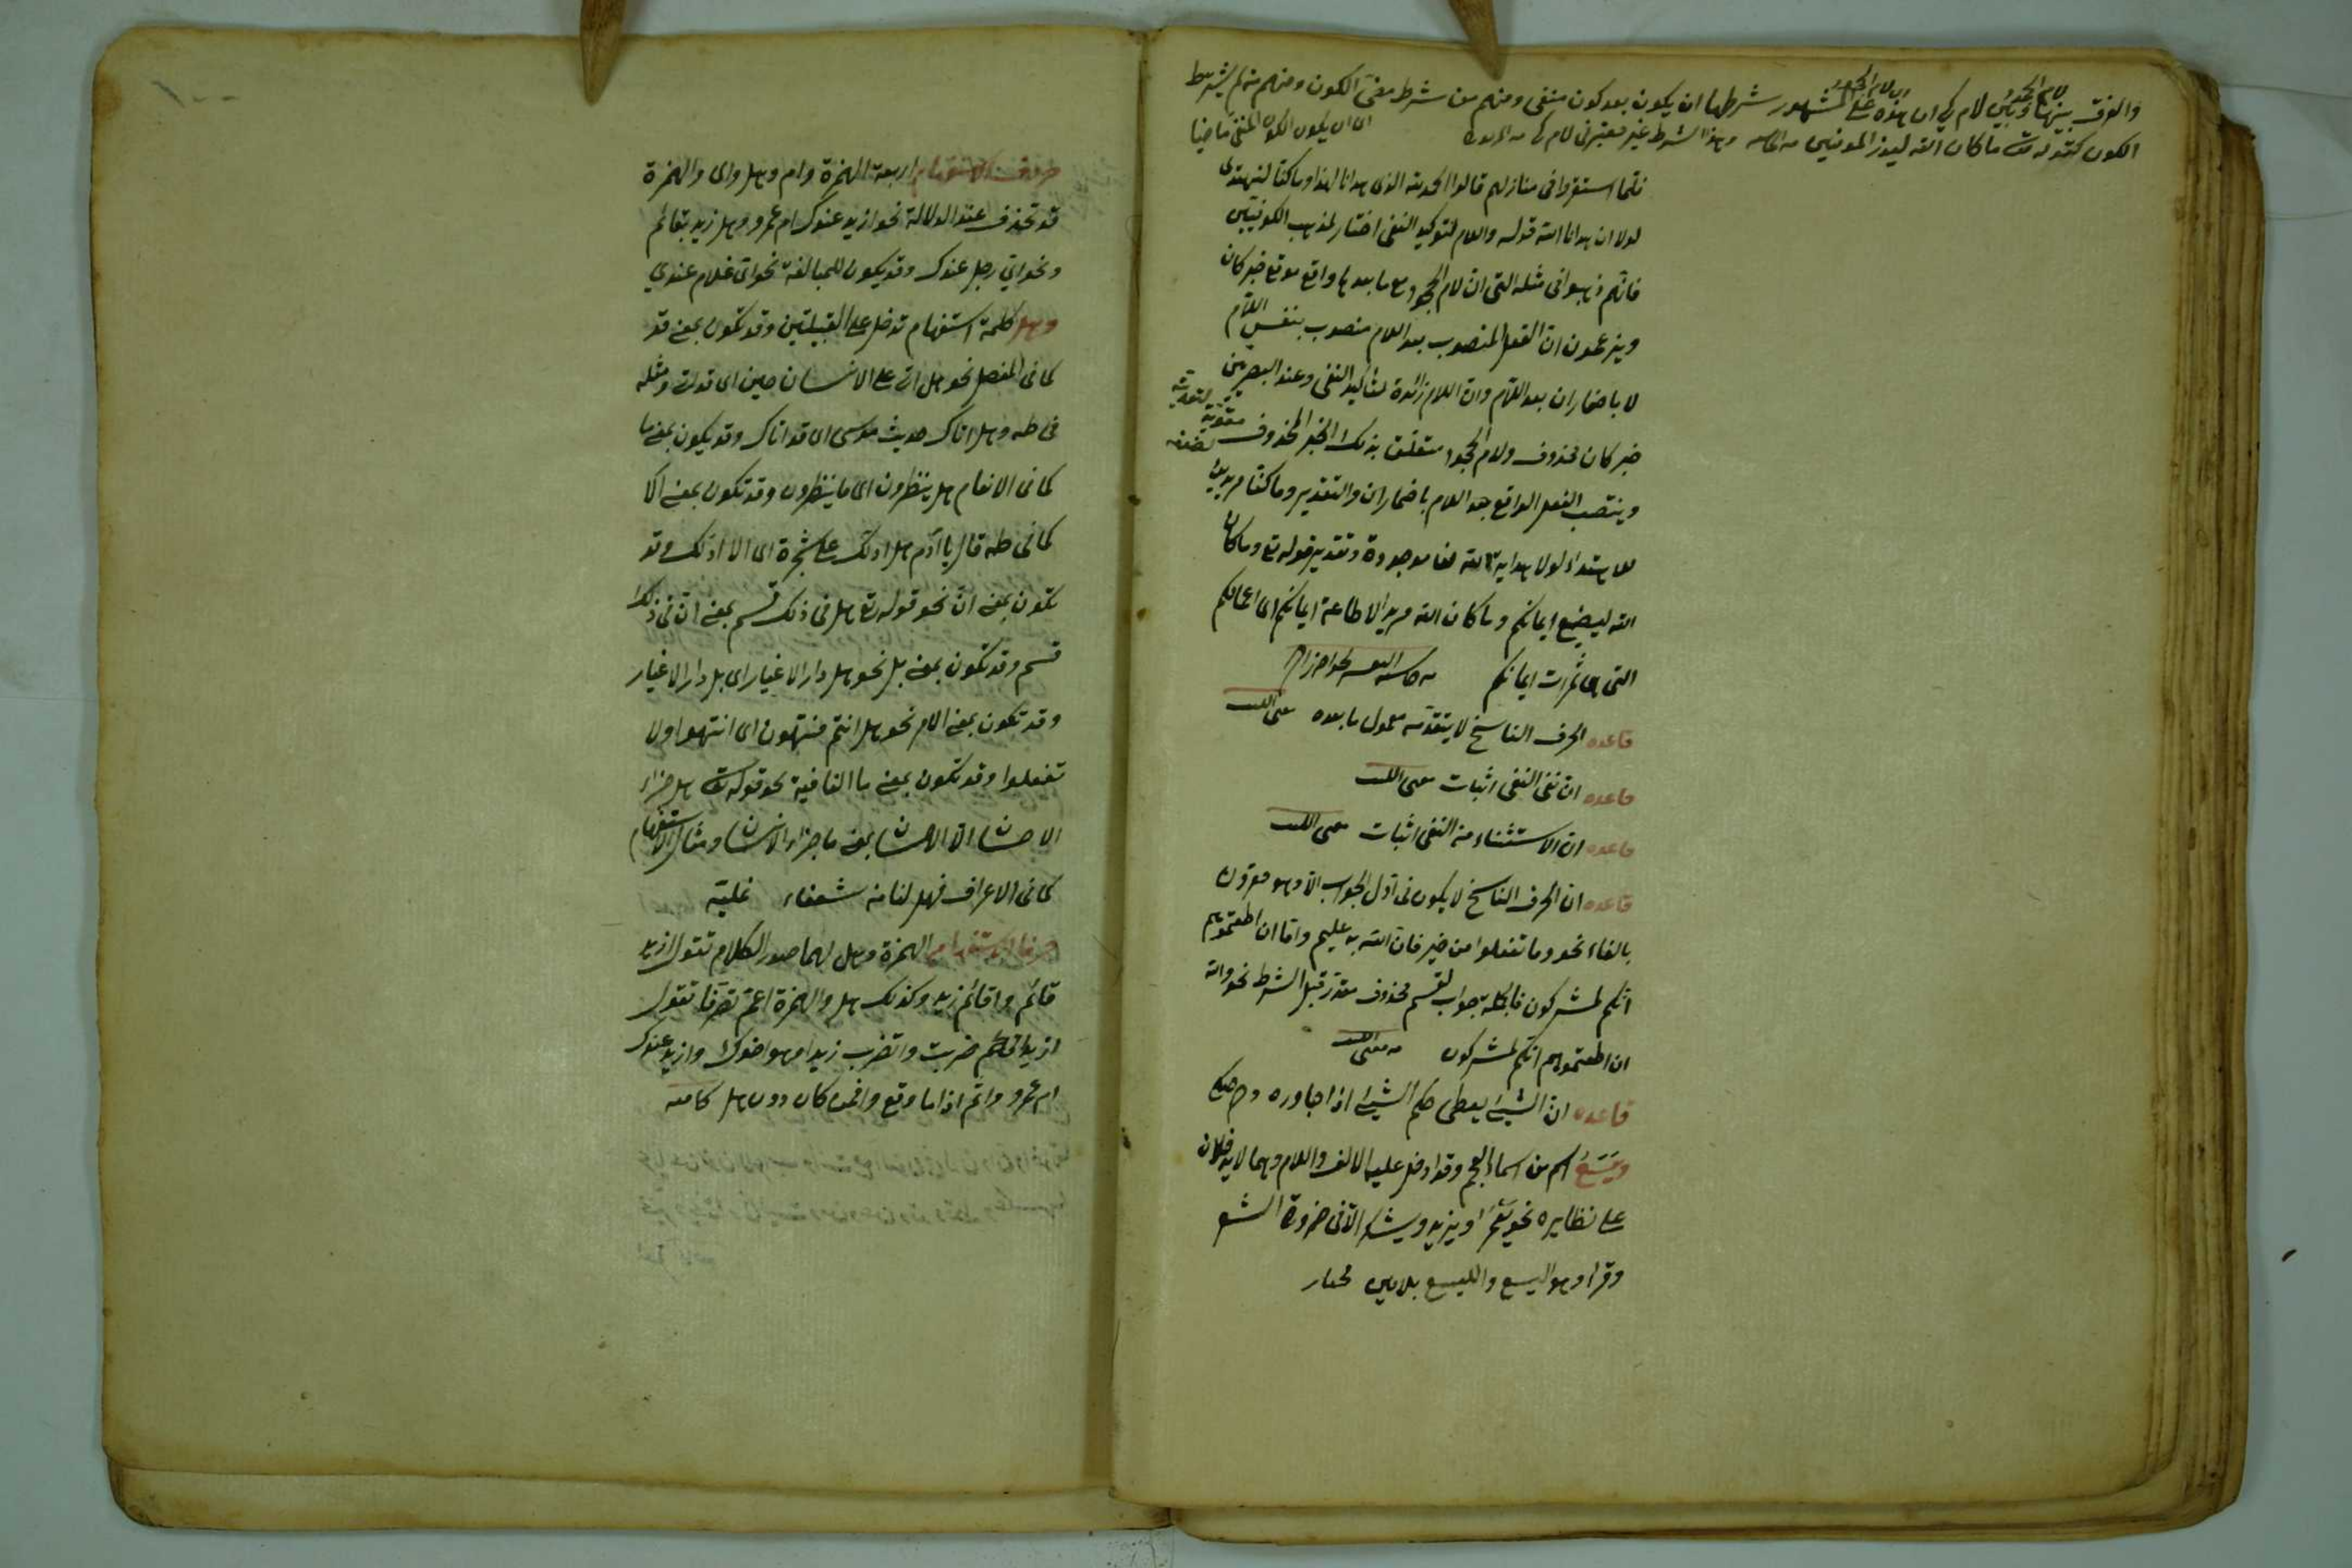 والفرق بينها وبين لام كي ان هذه على المشهور شرطها ان يكون بعد كون منفى ومنهم من شرط مضىّ الكون ومنهم من لم يشترط
الكون كقوله تعالى ما كان الله ليذر المؤمنين وهذا الشرط غير معتبر فى لام كى
اى ان يكون الكون المنفى ماضيا
فلما استقروا فى منازلهم قالوا الحمد لله الذى هدانا لهذا وما كنا لنهتدى
لولا ان هدانا الله قوله واللام لتوكيد النفى اختار لمذهب الكوفيين
فانّهم ذهبوا فى مثله الى ان لام الجحود مع ما بعدها واقع موقع خبر كان
ويزعمون ان الفعل المنصوب بعد اللام منصوب بنفس اللّام
لا باضمار ان بعد اللّام وان اللام زائدة لتأكيد النفى وعند البصريين
خبر كان محذوف ولام الجحود متعلّق بذلك الخبر المحذوف مقوّية لتعديته
لضعفه
وينتصب الفعل الواقع بعد اللام باضمار ان والتقدير وما كنا مريدين
للاهتداء لولا هداية الله لنا موجودة وتقدير قوله تع وما كان
الله ليضيع ايمانكم وما كان الله مريدا لاضاعة ايمانكم اى اعمالكم
التى هى ثمرات ايمانكم
قاعده الحرف الناسخ لا يتقدّمه معمول ما بعده
قاعده ان نفى النفى اثبات
قاعده ان الاستثناء من النفى اثبات
قاعده ان الحرف الناسخ لا يكون فى اوّل الجواب الّا وهو مقرون
بالفاء نحو وما تفعلوا من خير فان الله به عليم وامّا ان اطعتموهم
انّكم لمشركون فالجملة جواب لقسم محذوف مقدّر قبل الشرط نحو والله
ان اطعتموهم انّكم لمشركون
قاعده ان الشيئ يعطى حكم الشيئ اذا جاوره
ويَسَعُ اسم من اسماء العجم وقد ادخل عليه الالف واللام وهما لا يدخلان
على نظايره نحو يعمر ويزيد ويشكر الّا فى ضرورة الشعر
وقرأ وهو اليسع والليسع بلامين مختار
حروف الاستفهام اربعة الهمزة وام وهل واى والهمزة
قد تحذف عند الدلالة نحو ازيد عندك ام عمرو وهل زيد بقائم
ونحو اىّ رجل عندك وقد يكون للمبالغة نحو اىّ غلام عندى
وهل كلمة استفهام تدخل على القبيلتين وقد تكون بمعنى قد
كما فى المفصل نحو هل اتى على الانسان حين اى قد اتى ومثله
فى طه وهل اتاك حديث موسى اى قد اتاك وقد يكون بمعنى ما
كما فى الانعام هل ينظرون اى ما ينظرون وقد تكون بمعنى الا
كما فى طه قال يا آدم هل ادلّك على شجرة اى الا ادلّك وقد
تكون بمعنى انّ نحو قوله تع هل فى ذلك قسم بمعنى انّ فى ذلك
قسم وقد تكون بمعنى بل نحو هل دار الاغيار اى بل دار الاغيار
وقد تكون بمعنى الامر نحو هل انتم منتهون اى انتهوا ولا
تفعلوا وقد تكون بمعنى ما النافية نحو قوله تعالى هل جزاء
الاحسان الّا الاحسان بمعنى ما جزاء الاحسان ومثال الاستفهام
كما فى الاعراف فهل لنا من شفعاء
حرفا الاستفهام الهمزة وهل لهما صدر الكلام تقول ازيد
قائم واقائم زيد وكذلك هل والهمزة اعمّ تصرّفا تقول
ازيدا ضربت واتضرب زيدا وهو اخوك وازيد عندك
ام عمرو واثمّ اذا ما وقع وافمن كان دون هل